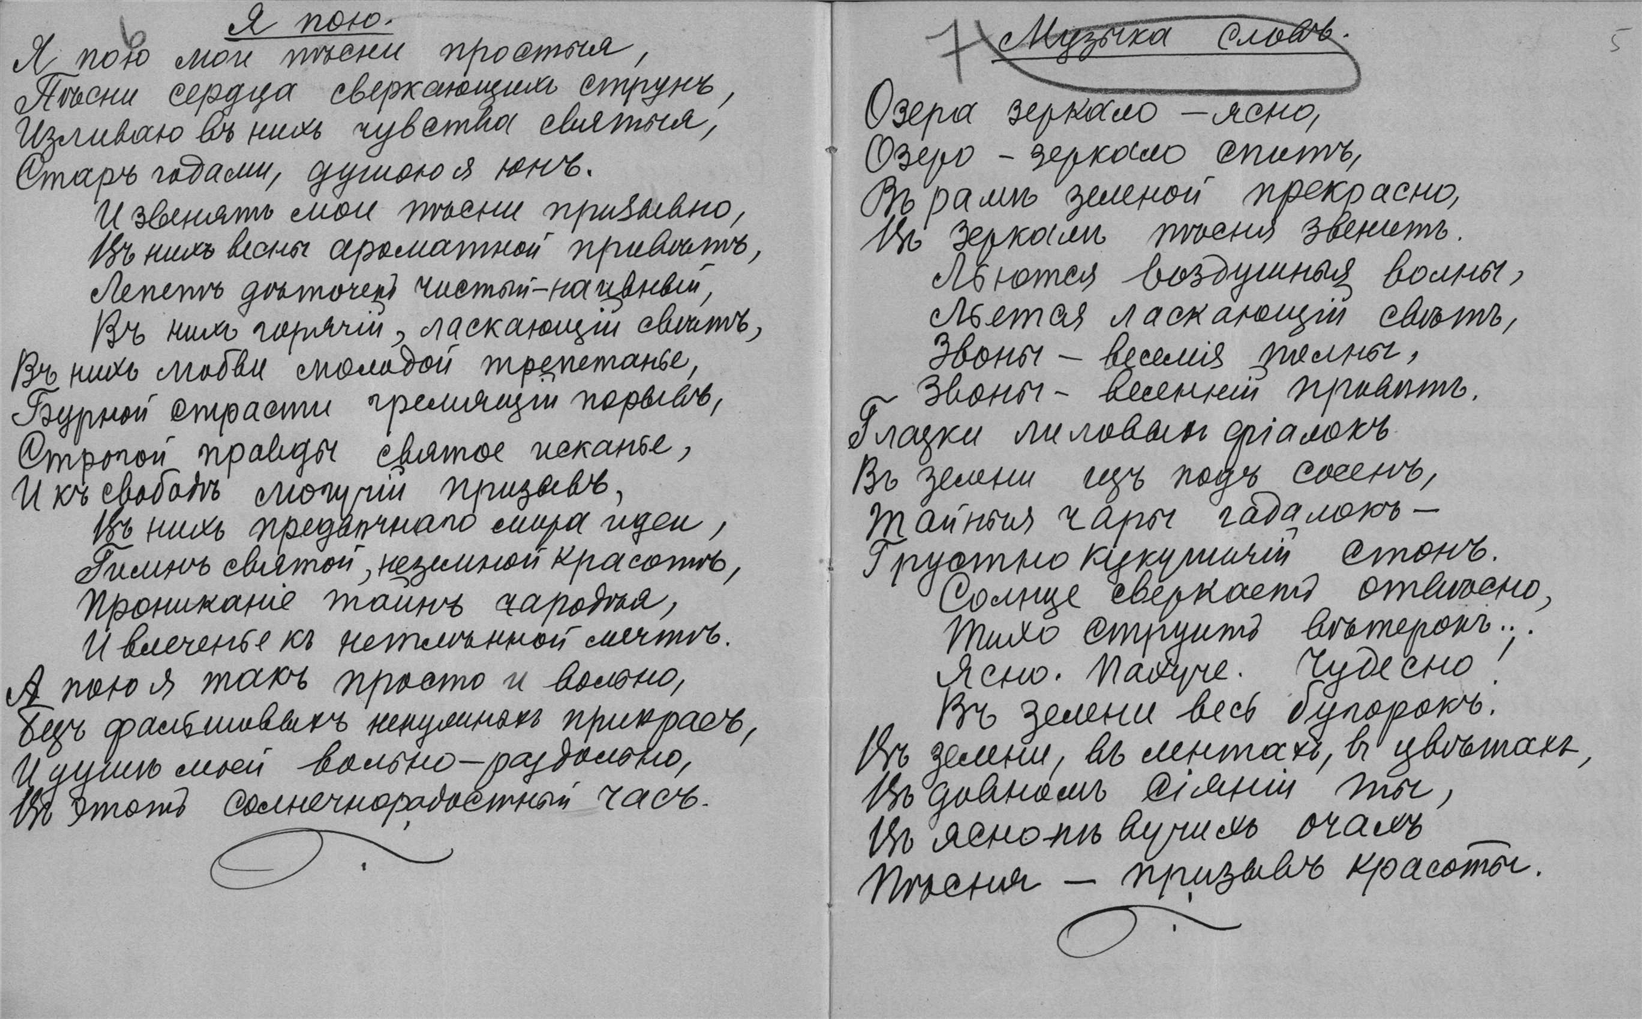 Я пою.
6
Я пою мои пѣсни простыя,
Пѣсни сердца сверкающихъ струнъ,
Изливаю въ нихъ чувства святыя,
Старъ годами, душою я юнъ.
И звенятъ мои пѣсни призывно,
Въ нихъ весны ароматной привѣтъ,
Лепетъ дѣточекъ чистый-наивный,
Въ нихъ горячій, ласкающій свѣтъ,
Въ нихъ любви молодой трепетанье,
Бурной страсти гремящій порывъ,
Строгой правды святое исканье,
И къ свободѣ могучій призывъ,
Въ нихъ предвѣчнаго мира идеи,
Гимнъ святой, неземной красотѣ,
Прониканіе тайнъ чародѣя,
И влеченье къ нетлѣнной мечтѣ.
А пою я такъ просто и вольно,
Безъ фальшивыхъ ненужныхъ прикрасъ,
И душѣ моей вольно-раздольно,
Въ этотъ солнечнорадостный часъ.
5
7
Музыка словъ.
Озера зеркало – ясно,
Озеро – зеркало спитъ,
Въ рамѣ зеленой прекрасно,
Въ зеркалѣ пѣсня звенитъ.
Льются воздушныя волны,
Льется ласкающій свѣтъ,
Звоны – веселія полны,
Звоны – весенній привѣтъ.
Глазки лиловыхъ фіалокъ
Въ зелени изъ подъ сосенъ,
Тайныя чары гадалокъ –
Грустно кукушечій стонъ.
Солнце сверкаетъ отвѣсно,
Тихо струитъ вѣтерокъ...
Ясно. Пахуче. Чудесно!
Въ зелени весь бугорокъ.
Въ зелени, въ лентахъ, въ цвѣтахъ,
Въ дивномъ сіяніи ты,
Въ ясно-пѣвучихъ очахъ
Пѣсня – призывъ красоты.